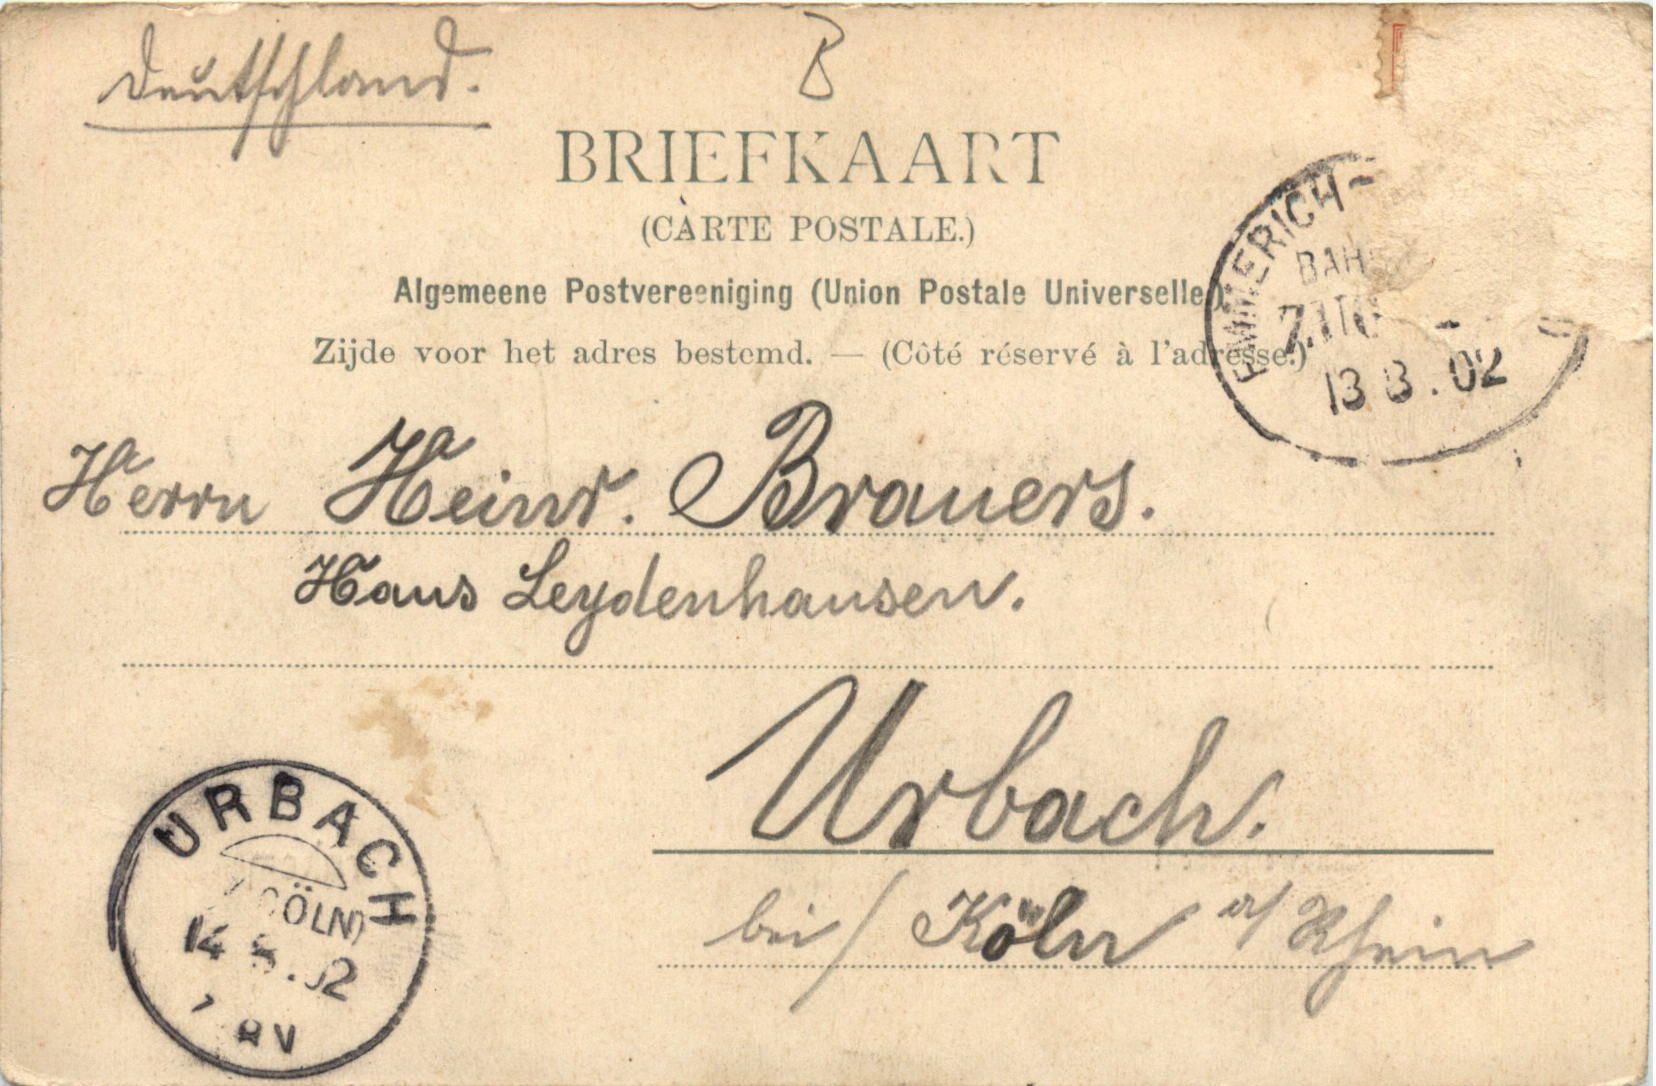 Deutschland.
B
BRIEFKAART
(CARTE POSTALE.)
Algemeene Postvereeniging (Union Postale Universelle).
Zijde voor het adres bestemd. — (Côté réservé à l'adresse.)
EMMERICH-
BAH
ZUG
13 8.02
Herrn Heinr. Brauers.
Haus Leydenhausen.
Urbach.
bei/ Köln a/Rhein
URBACH
(CÖLN)
14 8.02
7 8V